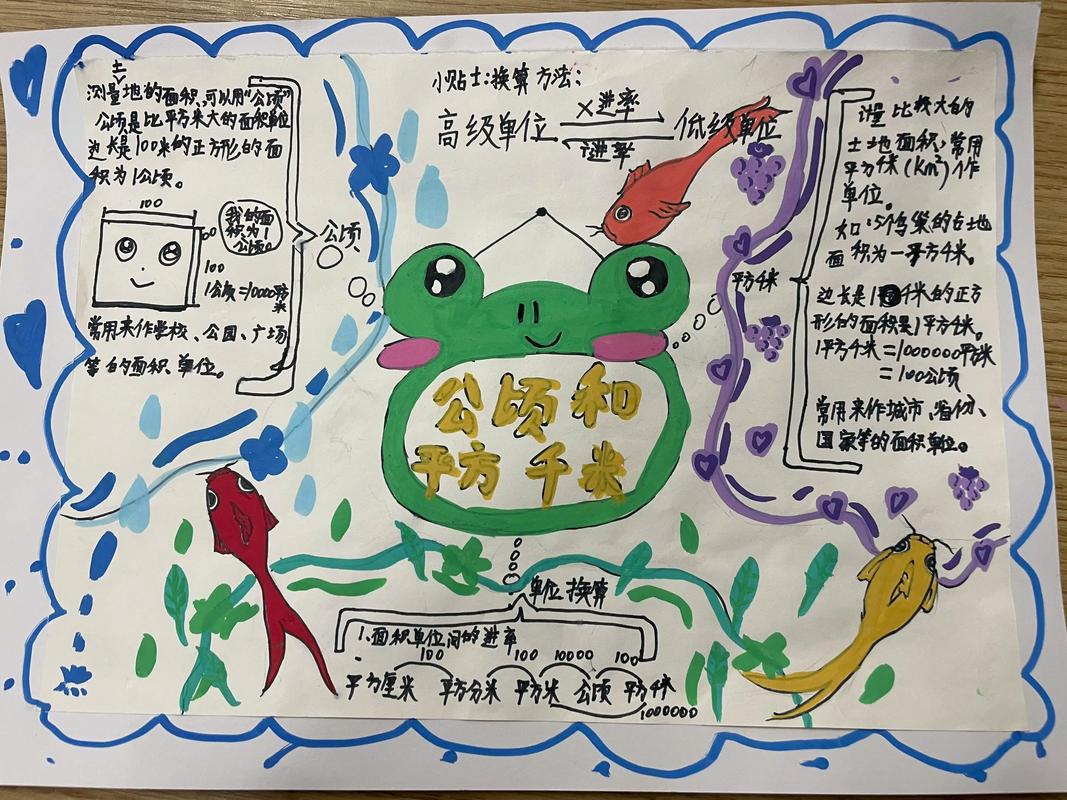 小贴士:换算方法:
高级单位 ×进率 低级单位
÷进率
土
测量地的面积,可以用“公顷”
公顷是比平方米大的面积单位
边长是100米的正方形的面
积为1公顷。
100
我的面
积为1
公顷。
100
1公顷=10000平方
米
常用来作学校、公园、广场
等的面积、单位。
公顷
公顷和
平方千米
平方千米
计量比较大的
土地面积,常用
平方千米(km²)作
单位。
如:5个鸟巢的占地
面积为一平方千米。
边长是1千米的正方
形的面积是1平方千米。
1平方千米=1000000平方米
=100公顷
常用来作城市,省份、
国家等的面积单位。
单位换算
1.面积单位间的进率
100 100 10000 100
平方厘米 平方分米 平方米 公顷 平方千米
1000000